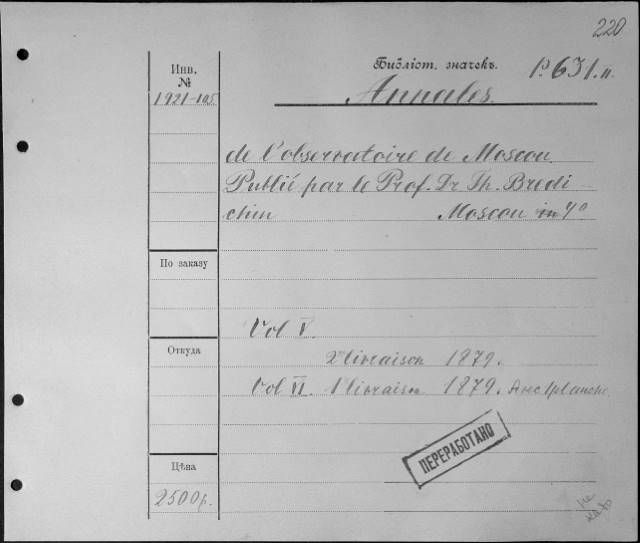 220
Инв.
№
1921-105
Библіот. значекъ. P.631.II.
Annales.
de l'observatoire de Moscou.
Publié par le Prof. Dr Th. Bredi-
chin Moscou in 4°
По заказу
Vol V.
2 livraison 1879.
Откуда
Vol VI. 1 livraison 1879. Avec 1 planche
ПЕРЕРАБОТАНО
Цѣна
2500р.